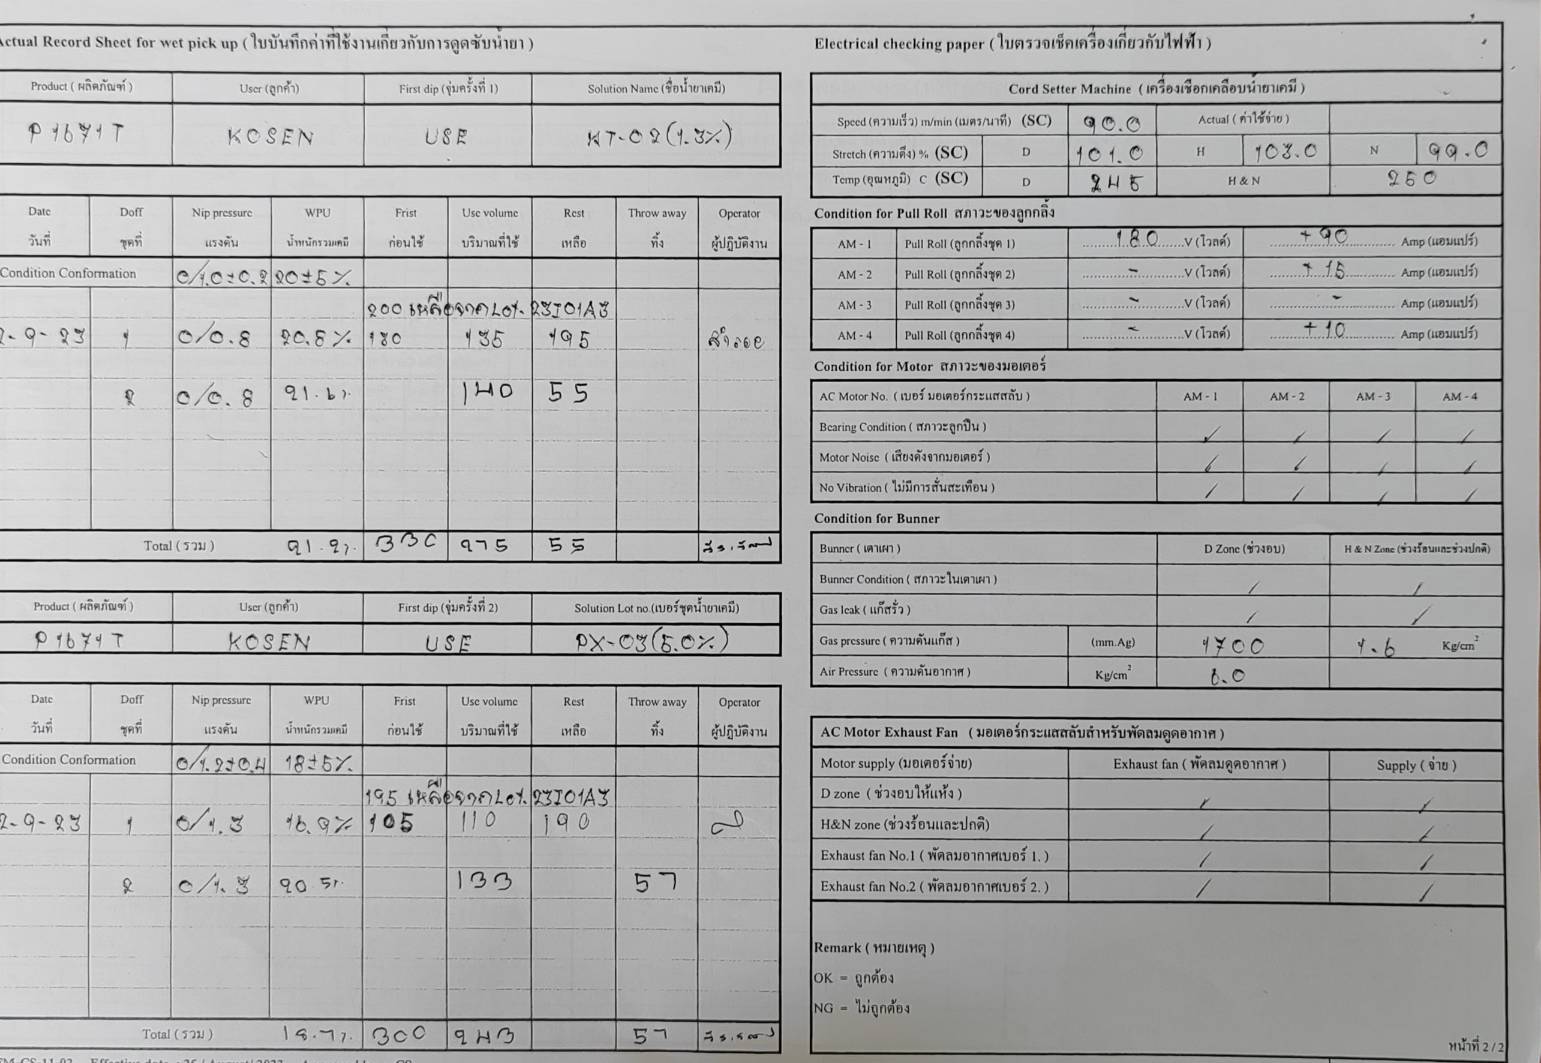 Actual Record Sheet for wet pick up ( ใบบันทึกค่าที่ใช้งานเกี่ยวกับการดูดซับน้ำยา )
Product ( ผลิตภัณฑ์ ) User (ลูกค้า) First dip (จุ่มครั้งที่ 1) Solution Name (ชื่อน้ำยาเคมี)
P1671T KOSEN USE KT-02(1.3%)
Date Doff Nip pressure WPU Frist Use volume Rest Throw away Operator
วันที่ ชุดที่ แรงดัน น้ำหนักรวมเคมี ก่อนใช้ ปริมาณที่ใช้ เหลือ ทิ้ง ผู้ปฏิบัติงาน
Condition Conformation 0/1.0±0.2 20±5%
200 เหลือจาก Lot. 23I01A3
2-9-23 1 0/0.8 20.8% 130 135 195
2 0/0.8 21.6% 140 55
Total ( รวม ) 21.2% 330 275 55
Product ( ผลิตภัณฑ์ ) User (ลูกค้า) First dip (จุ่มครั้งที่ 2) Solution Lot no.(เบอร์ชุดน้ำยาเคมี)
P1671T KOSEN USE PX-03(5.0%)
Date Doff Nip pressure WPU Frist Use volume Rest Throw away Operator
วันที่ ชุดที่ แรงดัน น้ำหนักรวมเคมี ก่อนใช้ ปริมาณที่ใช้ เหลือ ทิ้ง ผู้ปฏิบัติงาน
Condition Conformation 0/1.2±0.4 18±5%
195 เหลือจาก Lot. 23I01A3
2-9-23 1 0/1.3 16.9% 105 110 190
2 0/1.3 20.5% 133 57
Total ( รวม ) 18.7% 300 243 57
Electrical checking paper ( ใบตรวจเช็คเครื่องเกี่ยวกับไฟฟ้า )
Cord Setter Machine ( เครื่องเชือกเคลือบน้ำยาเคมี )
Speed (ความเร็ว) m/min (เมตร/นาที) (SC) 90.0 Actual ( ค่าใช้จ่าย )
Stretch (ความตึง) % (SC) D 101.0 H 103.0 N 99.0
Temp (อุณหภูมิ) C (SC) D 245 H & N 250
Condition for Pull Roll สภาวะของลูกกลิ้ง
AM - 1 Pull Roll (ลูกกลิ้งชุด 1) 180 V (โวลต์) + 90 Amp (แอมแปร์)
AM - 2 Pull Roll (ลูกกลิ้งชุด 2) - V (โวลต์) + 15 Amp (แอมแปร์)
AM - 3 Pull Roll (ลูกกลิ้งชุด 3) - V (โวลต์) - Amp (แอมแปร์)
AM - 4 Pull Roll (ลูกกลิ้งชุด 4) - V (โวลต์) + 10 Amp (แอมแปร์)
Condition for Motor สภาวะของมอเตอร์
AC Motor No. ( เบอร์ มอเตอร์กระแสสลับ ) AM - 1 AM - 2 AM - 3 AM - 4
Bearing Condition ( สภาวะลูกปืน ) / / / /
Motor Noise ( เสียงดังจากมอเตอร์ ) / / / /
No Vibration ( ไม่มีการสั่นสะเทือน ) / / / /
Condition for Bunner
Bunner ( เตาเผา ) D Zone (ช่วงอบ) H & N Zone (ช่วงร้อนและช่วงปกติ)
Bunner Condition ( สภาวะในเตาเผา ) / /
Gas leak ( แก๊สรั่ว ) / /
Gas pressure ( ความดันแก๊ส ) (mm.Ag) 1700 1.6 Kg/cm²
Air Pressure ( ความดันอากาศ ) Kg/cm² 6.0
AC Motor Exhaust Fan ( มอเตอร์กระแสสลับสำหรับพัดลมดูดอากาศ )
Motor supply (มอเตอร์จ่าย) Exhaust fan ( พัดลมดูดอากาศ ) Supply ( จ่าย )
D zone ( ช่วงอบให้แห้ง ) / /
H&N zone (ช่วงร้อนและปกติ) / /
Exhaust fan No.1 ( พัดลมอากาศเบอร์ 1. ) / /
Exhaust fan No.2 ( พัดลมอากาศเบอร์ 2. ) / /
Remark ( หมายเหตุ )
OK = ถูกต้อง
NG = ไม่ถูกต้อง
หน้าที่ 2 / 2